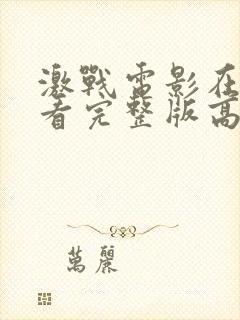 激戰電影在
看完整版高
萬麗